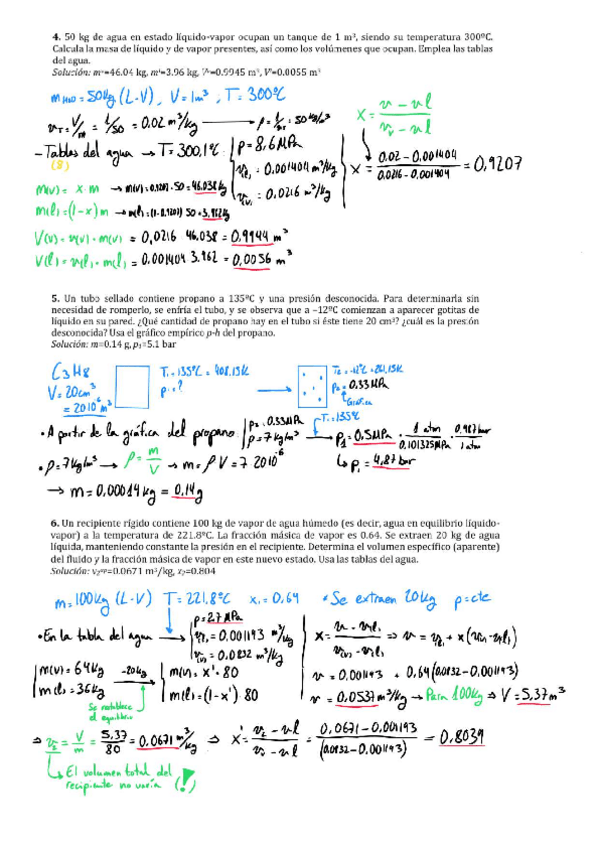 4. 50 kg de agua en estado líquido-vapor ocupan un tanque de 1 m³, siendo su temperatura 300ºC.
Calcula la masa de líquido y de vapor presentes, así como los volúmenes que ocupan. Emplea las tablas
del agua.
Solución: mᵛ=46.04 kg, mˡ=3.96 kg, Vᵛ=0.9945 m³, Vˡ=0.0055 m³
m H2O = 50Kg (L-V), V = 1m³, T = 300ºC
v_T = V/m = 1/50 = 0.02 m³/kg → ρ = 1/v_T = 50 kg/m³
x = (v - vl)/(vv - vl)
- Tablas del agua → T = 300,1ºC
(8)
p = 8,6 MPa
v(l) = 0.001404 m³/kg
v(v) = 0,0216 m³/kg
x = (0.02 - 0.001404)/(0.0216 - 0.001404) = 0,9207
m(v) = x · m → m(v) = 0.9207 · 50 = 46.038 kg
m(l) = (1-x) m → m(l) = (1-0.9207) 50 = 3.962 kg
V(v) = v(v) · m(v) = 0,0216 46.038 = 0,9944 m³
V(l) = v(l) · m(l) = 0.001404 3.962 = 0,0056 m³
5. Un tubo sellado contiene propano a 135ºC y una presión desconocida. Para determinarla sin
necesidad de romperlo, se enfría el tubo, y se observa que a –12ºC comienzan a aparecer gotitas de
líquido en su pared. ¿Qué cantidad de propano hay en el tubo si éste tiene 20 cm³? ¿cuál es la presión
desconocida? Usa el gráfico empírico p-h del propano.
Solución: m=0.14 g, p₁=5.1 bar
C3H8
V = 20cm³
= 20 10⁻⁶ m³
T1 = 135ºC = 408.15K
p1 = ?
T2 = -12ºC = 261.15K
p2 = 0.33MPa
Gráfica
• A partir de la gráfica del propano
p2 = 0.33MPa
ρ = 7 kg/m³
T1 = 135ºC
P1 = 0,5MPa · 1 atm/0.101325MPa · 0.987bar/1 atm
↳ p1 = 4,87 bar
• ρ = 7 kg/m³ → ρ = m/V → m = ρ V = 7 · 20 10⁻⁶
→ m = 0,00014 kg = 0,14g
6. Un recipiente rígido contiene 100 kg de vapor de agua húmedo (es decir, agua en equilibrio líquido-
vapor) a la temperatura de 221.8ºC. La fracción másica de vapor es 0.64. Se extraen 20 kg de agua
líquida, manteniendo constante la presión en el recipiente. Determina el volumen específico (aparente)
del fluido y la fracción másica de vapor en este nuevo estado. Usa las tablas del agua.
Solución: v₂ᵃᵖ=0.0671 m³/kg, x₂=0.804
m = 100Kg (L-V) T = 221.8ºC x1 = 0,64 • Se extraen 20Kg p = cte
• En la tabla del agua →
p = 27 MPa
v(l) = 0,001193 m³/kg
v(v) = 0.0832 m³/kg
x = (v - v(l))/(v(v) - v(l)) ⇒ v = v(l) + x (v(v) - v(l))
v = 0.001193 + 0,64 (0.0832 - 0.001193)
v = 0,0537 m³/kg → Para 100kg ⇒ V = 5,37 m³
m(v) = 64kg
m(l) = 36kg
-20kg
m(v) = x' · 80
m(l) = (1-x') 80
Se restablece
el equilibrio
⇒ v2 = V/m = 5,37/80 = 0,0671 m³/kg ⇒ x' = (v2 - vl)/(vv - vl) = (0,0671 - 0,001193)/(0.0832 - 0.001193) = 0,8039
↳ El volumen total del
recipiente no varía (!)